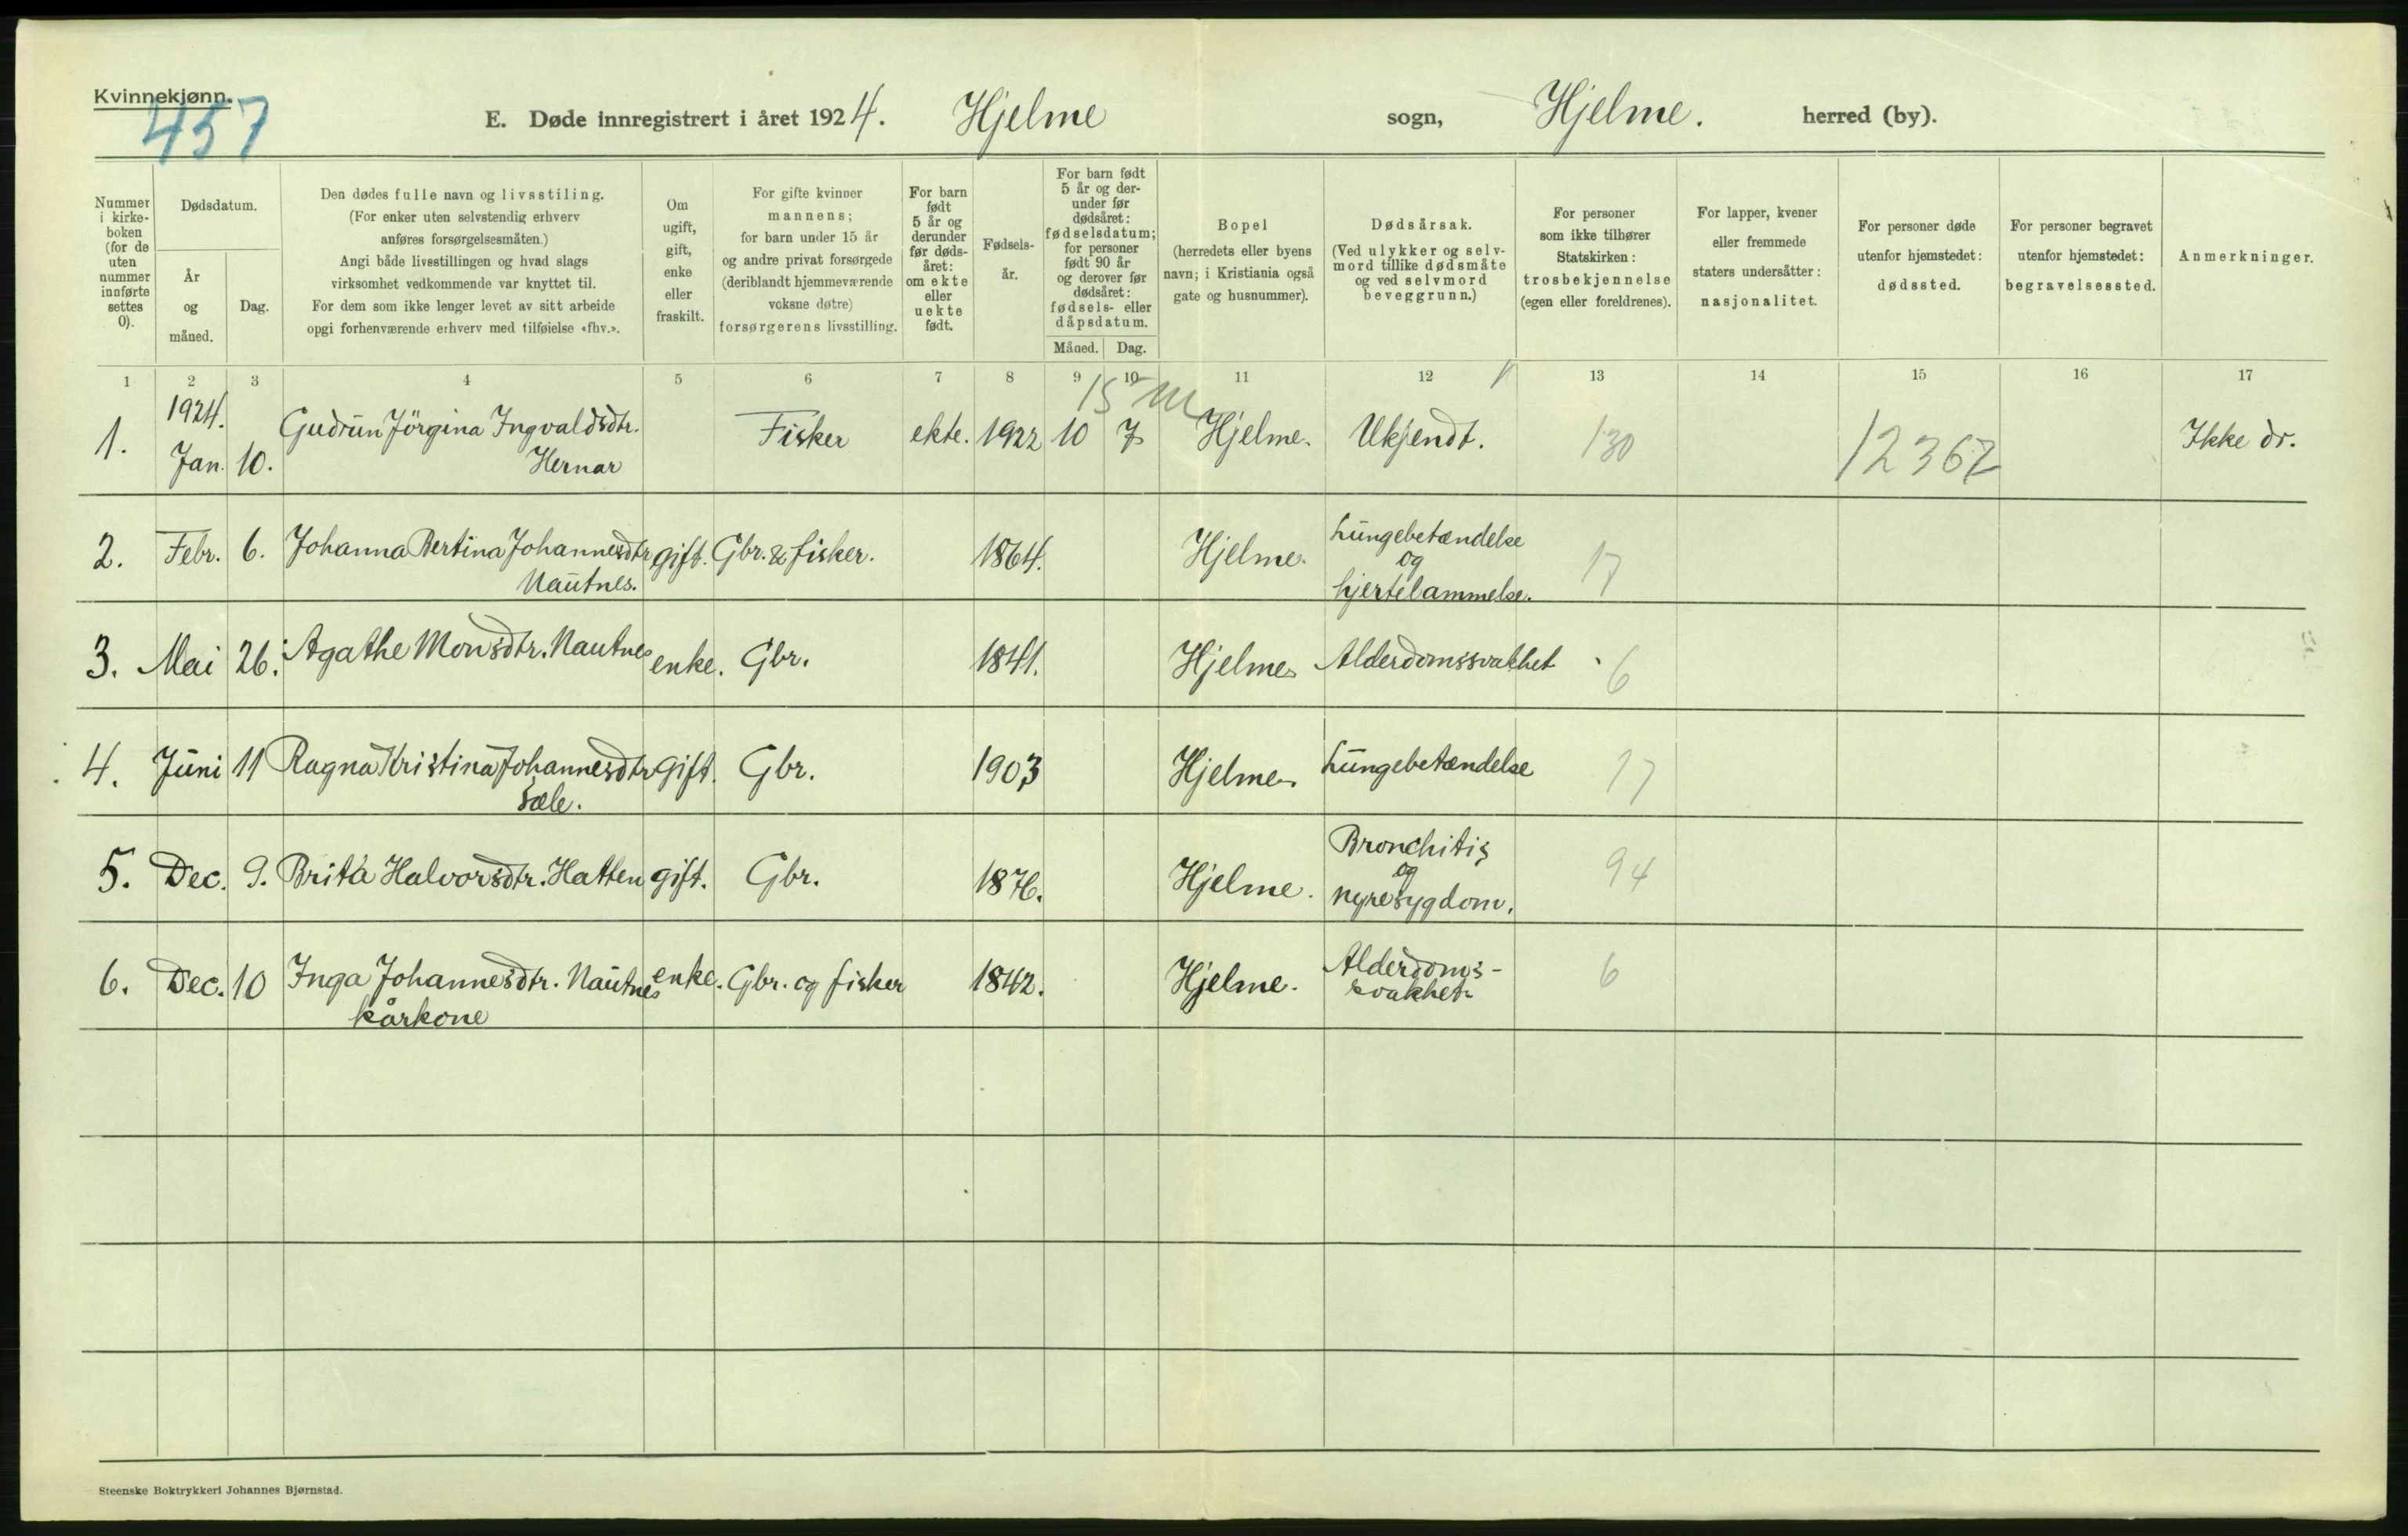 Kvinnekjønn.
457
E. Døde innregistrert i året 1924. Hjelme sogn, Hjelme. herred (by).
Nummer i kirke- boken (for de uten nummer innførte settes 0).
Dødsdatum.
År og måned.
Dag.
Den dødes fulle navn og livsstiling.
(For enker uten selvstendig erhverv
anføres forsørgelsesmåten.)
Angi både livsstillingen og hvad slags
virksomhet vedkommende var knyttet til.
For dem som ikke lenger levet av sitt arbeide
opgi forhenværende erhverv med tilføielse «fhv.».
Om ugift, gift, enke eller fraskilt.
For gifte kvinner
mannens;
for barn under 15 år
og andre privat forsørgede
(deriblandt hjemmeværende
voksne døtre)
forsørgerens livsstilling.
For barn født 5 år og derunder før døds- året: om ekte eller uekte født.
Fødsels- år.
For barn født 5 år og der- under før dødsåret: fødselsdatum; for personer født 90 år og derover før dødsåret: fødsels- eller dåpsdatum.
Måned. Dag.
Bopel
(herredets eller byens
navn; i Kristiania også
gate og husnummer).
Dødsårsak.
(Ved ulykker og selv-
mord tillike dødsmåte
og ved selvmord
beveggrunn.)
For personer
som ikke tilhører
Statskirken:
trosbekjennelse
(egen eller foreldrenes).
For lapper, kvener
eller fremmede
staters undersåtter:
nasjonalitet.
For personer døde
utenfor hjemstedet:
dødssted.
For personer begravet
utenfor hjemstedet:
begravelsessted.
Anmerkninger.
1 2 3 4 5 6 7 8 9 10 11 12 13 14 15 16 17
15 m
1924.
1. Jan. 10. Gudrun Jörgina Ingvaldsdtr. Fisker ekte. 1922 10 7 Hjelme. Ukjendt. 130 12367 Ikke dr.
Hernar
2. Febr. 6. Johanna Bertina Johannesdtr gift. Gbr. & fisker. 1864. Hjelme. Lungebetændelse 17
og
Nautnes. hjertelammelse.
3. Mai 26. Agathe Monsdtr. Nautnes enke. Gbr. 1841. Hjelme Alderdomssvakhet 6
4. Juni 11 Ragna Kristina Johannesdtr gift. Gbr. 1903 Hjelme. Lungebetændelse 17
Sæle.
5. Dec. 9. Brita Halvorsdtr. Hatten gift. Gbr. 1876. Hjelme. Bronchitis 94
og
nyresygdom.
6. Dec. 10 Inga Johannesdtr. Nautnes enke. Gbr. og fisker 1842. Hjelme. Alderdoms- 6
svakhet
kårkone
Steenske Boktrykkeri Johannes Bjørnstad.